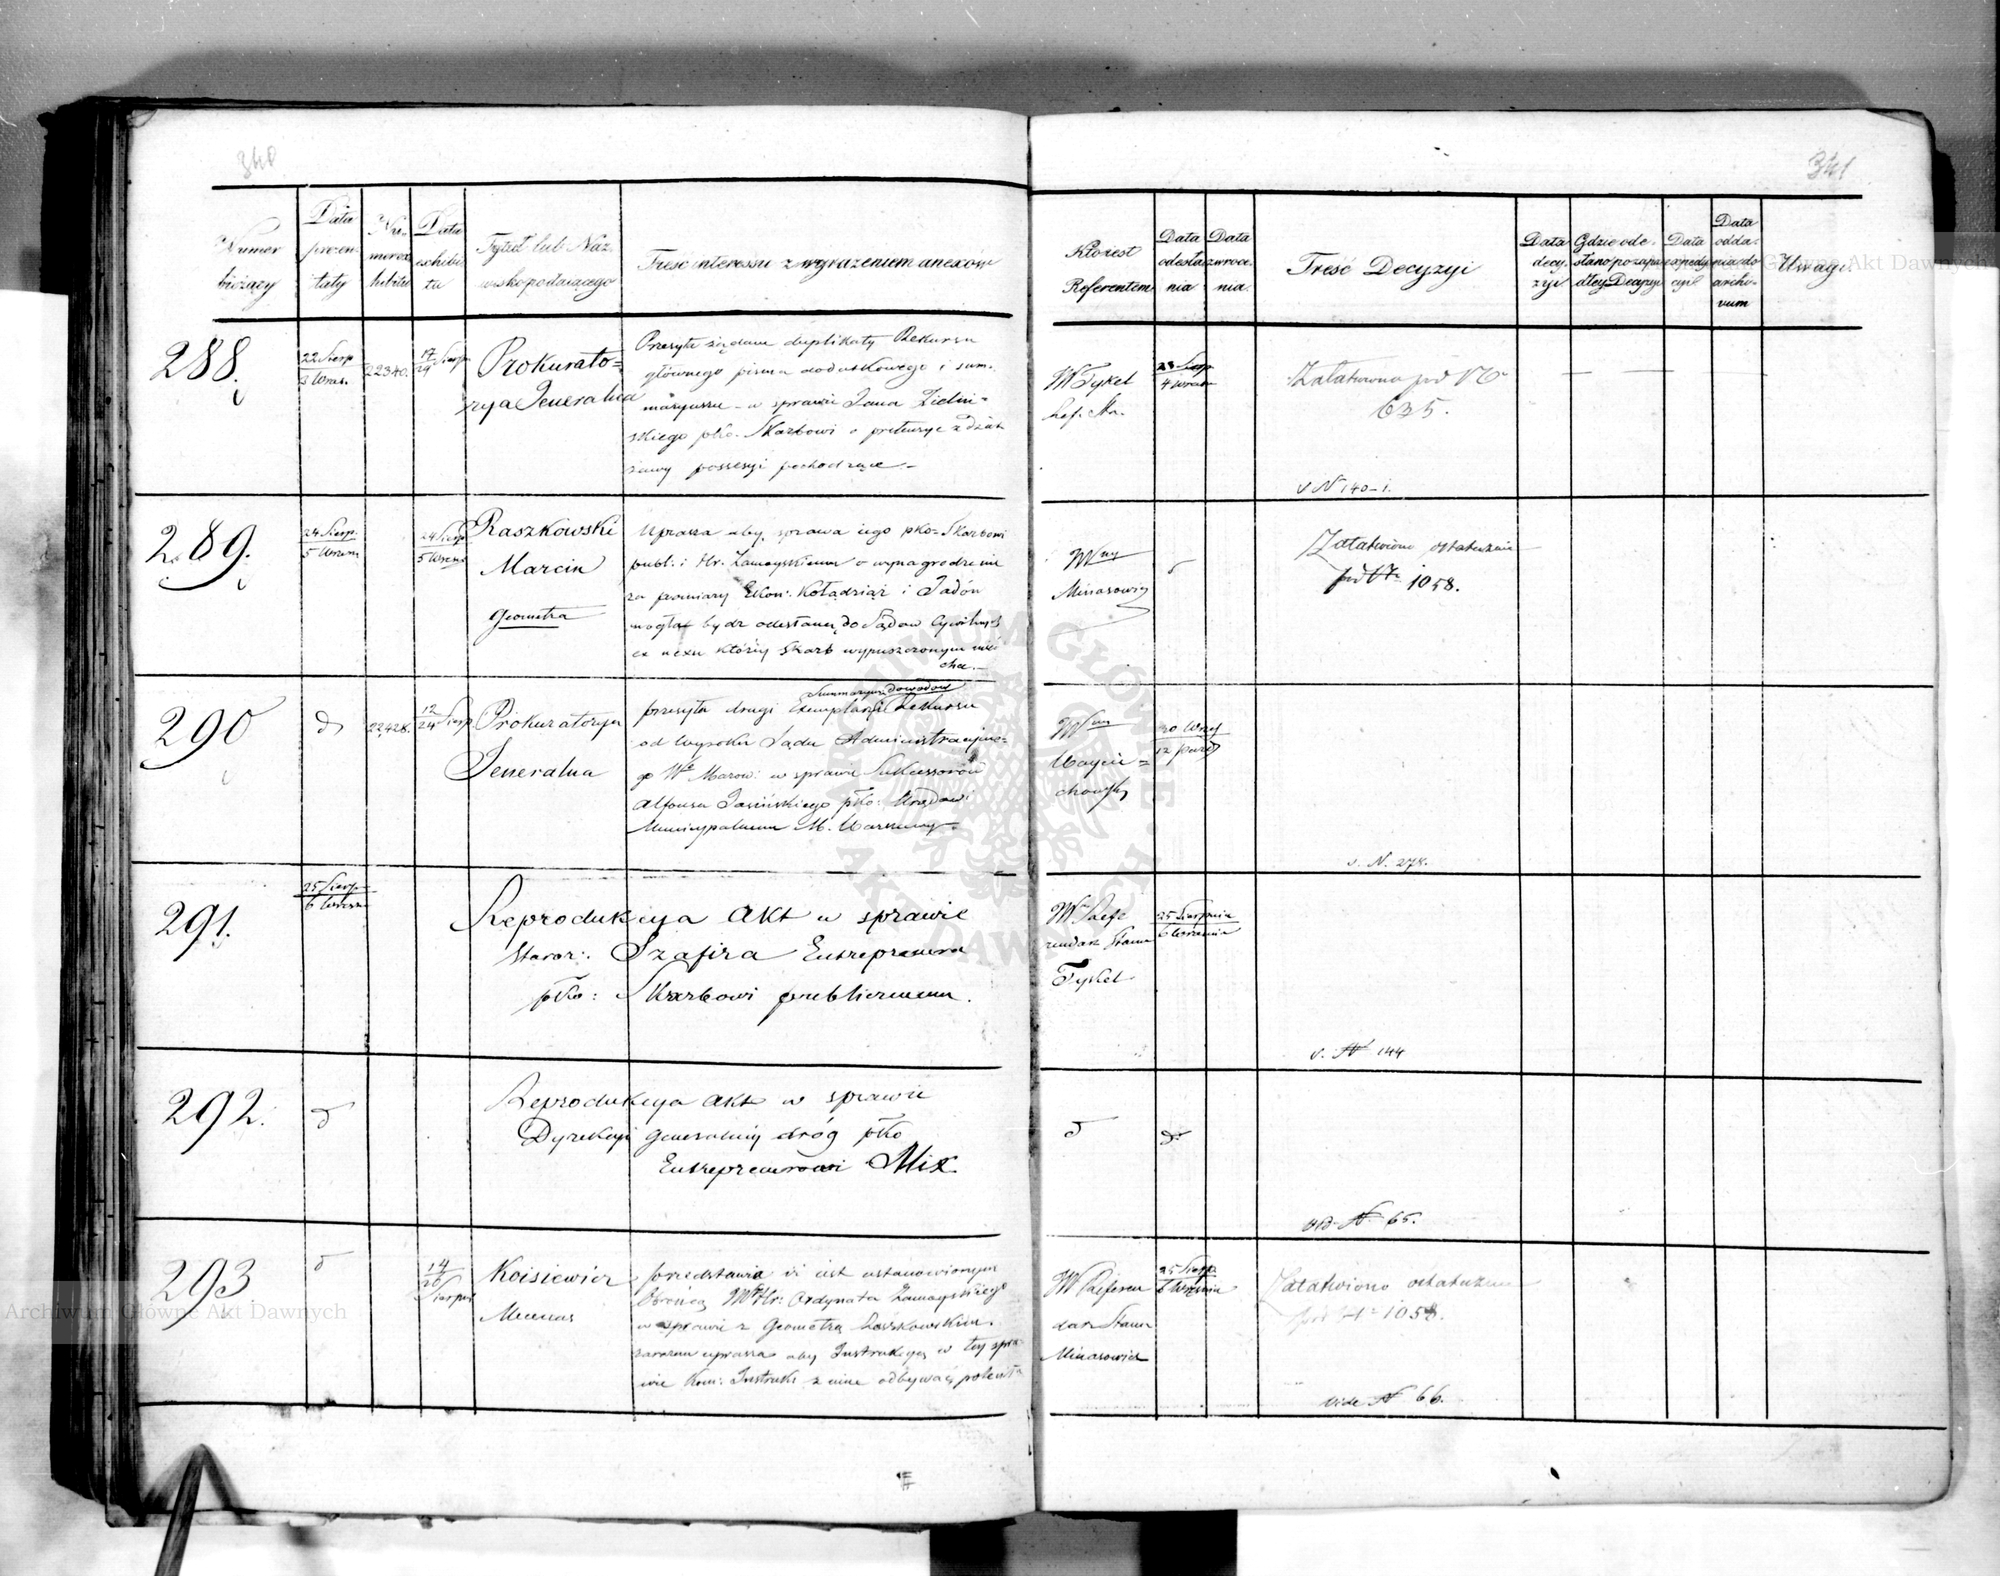 340
Numer bieżący
Data prezentaty
Numer exhibitu
Data exhibitu
Tytuł lub Nazwisko podaiącego
Treść interessu z wyrażeniem anexów
288.
22 Sierp
3 Wrześ.
22340.
17 Sierp
29
Prokurato=
rya Jeneralna
Przesyła żądane duplikaty Rekursu
głównego pisma dodatkowego i sum-
maryuszu - w sprawie Jana Zieliń-
skiego pko. Skarbowi o pretensye z dzier
żawy possesyi pochodzące.-
289.
24 Sierp.
5 Wrześn
24 Sierp
5 Wrześ
Raszkowski
Marcin
Geometra
Uprasza aby sprawa iego pko- Skarbowi
publ: i Hr. Zamoyskiemu o wynagrodzenie
za pomiary Ekon: Kołądziąż i Jadów
mogła bydz odesłaną do Sądów Cywilnych
ex nexu którzy Skarb wypuszczonym mieć
chce.-
290
d
22,428.
12
24 Sierp
Prokuratorya
Jeneralna
Summaryusz dowodów
przesyła drugi Exemplarz Rekursu
od Wyroku Sądu Administracyjne-
go Wo Mazow: w sprawie Sukcessorów
Alfonsa Jasińskiego pko: Urzędowi
Municypalnemu M. Warszawy.
291.
25 Sierp
6 Wrześn
Reprodukcya Akt w sprawie
Staroz: Szafira Entreprenera
pko: Skarbowi publicznemu.
292.
d
Reprodukcya Akt w sprawie
Dyrekcyi Generalnéy dróg pko
Entreprenerowi Mix
293
d
14
26 Sierpni
Koisiewicz
Mecenas
przedstawia iż iest ustanowionym
Obrońcą JW Hr: Ordynata Zamoyskiego
w sprawie z Geometrą Raszkowskim.
zarazem uprasza aby Instrukcyą w tey spra
wie Kom: Instruk: z nim odbywać poleciła
341
Kto iest Referentem
Data odesłania
Data zwrócenia.
Treść Decyzyi
Data decyzyi
Gdzie odesłano po zapadłey Decyzyi
Data expedycyi
Data oddania do archivum
Uwagi
W Tykel
Ref. Sta.
23 Sierp
4 Wrześn
Załatwiono pod No
635.
v N 140-1.
W ny
Minasowicz
d
Załatwiono ostatecznie
pod No 1058.
W ny
Woycie=
chowsky
30 Wrześ
12 Paźd
v. N. 278.
W Refe
rendarz Stanu
Tykel
25 Sierpnia
6 Września
v. N 144
d
d
vid. N 65.
W Referen
darz Stanu
Minasowicz
25 Sierp.
6 Września
Załatwiono ostatecznie
pod No 1058.
vide N 66.
Archiwum Główne Akt Dawnych
Archiwum Główne Akt Dawnych
ARCHIWUM GŁÓWNE AKT DAWNYCH